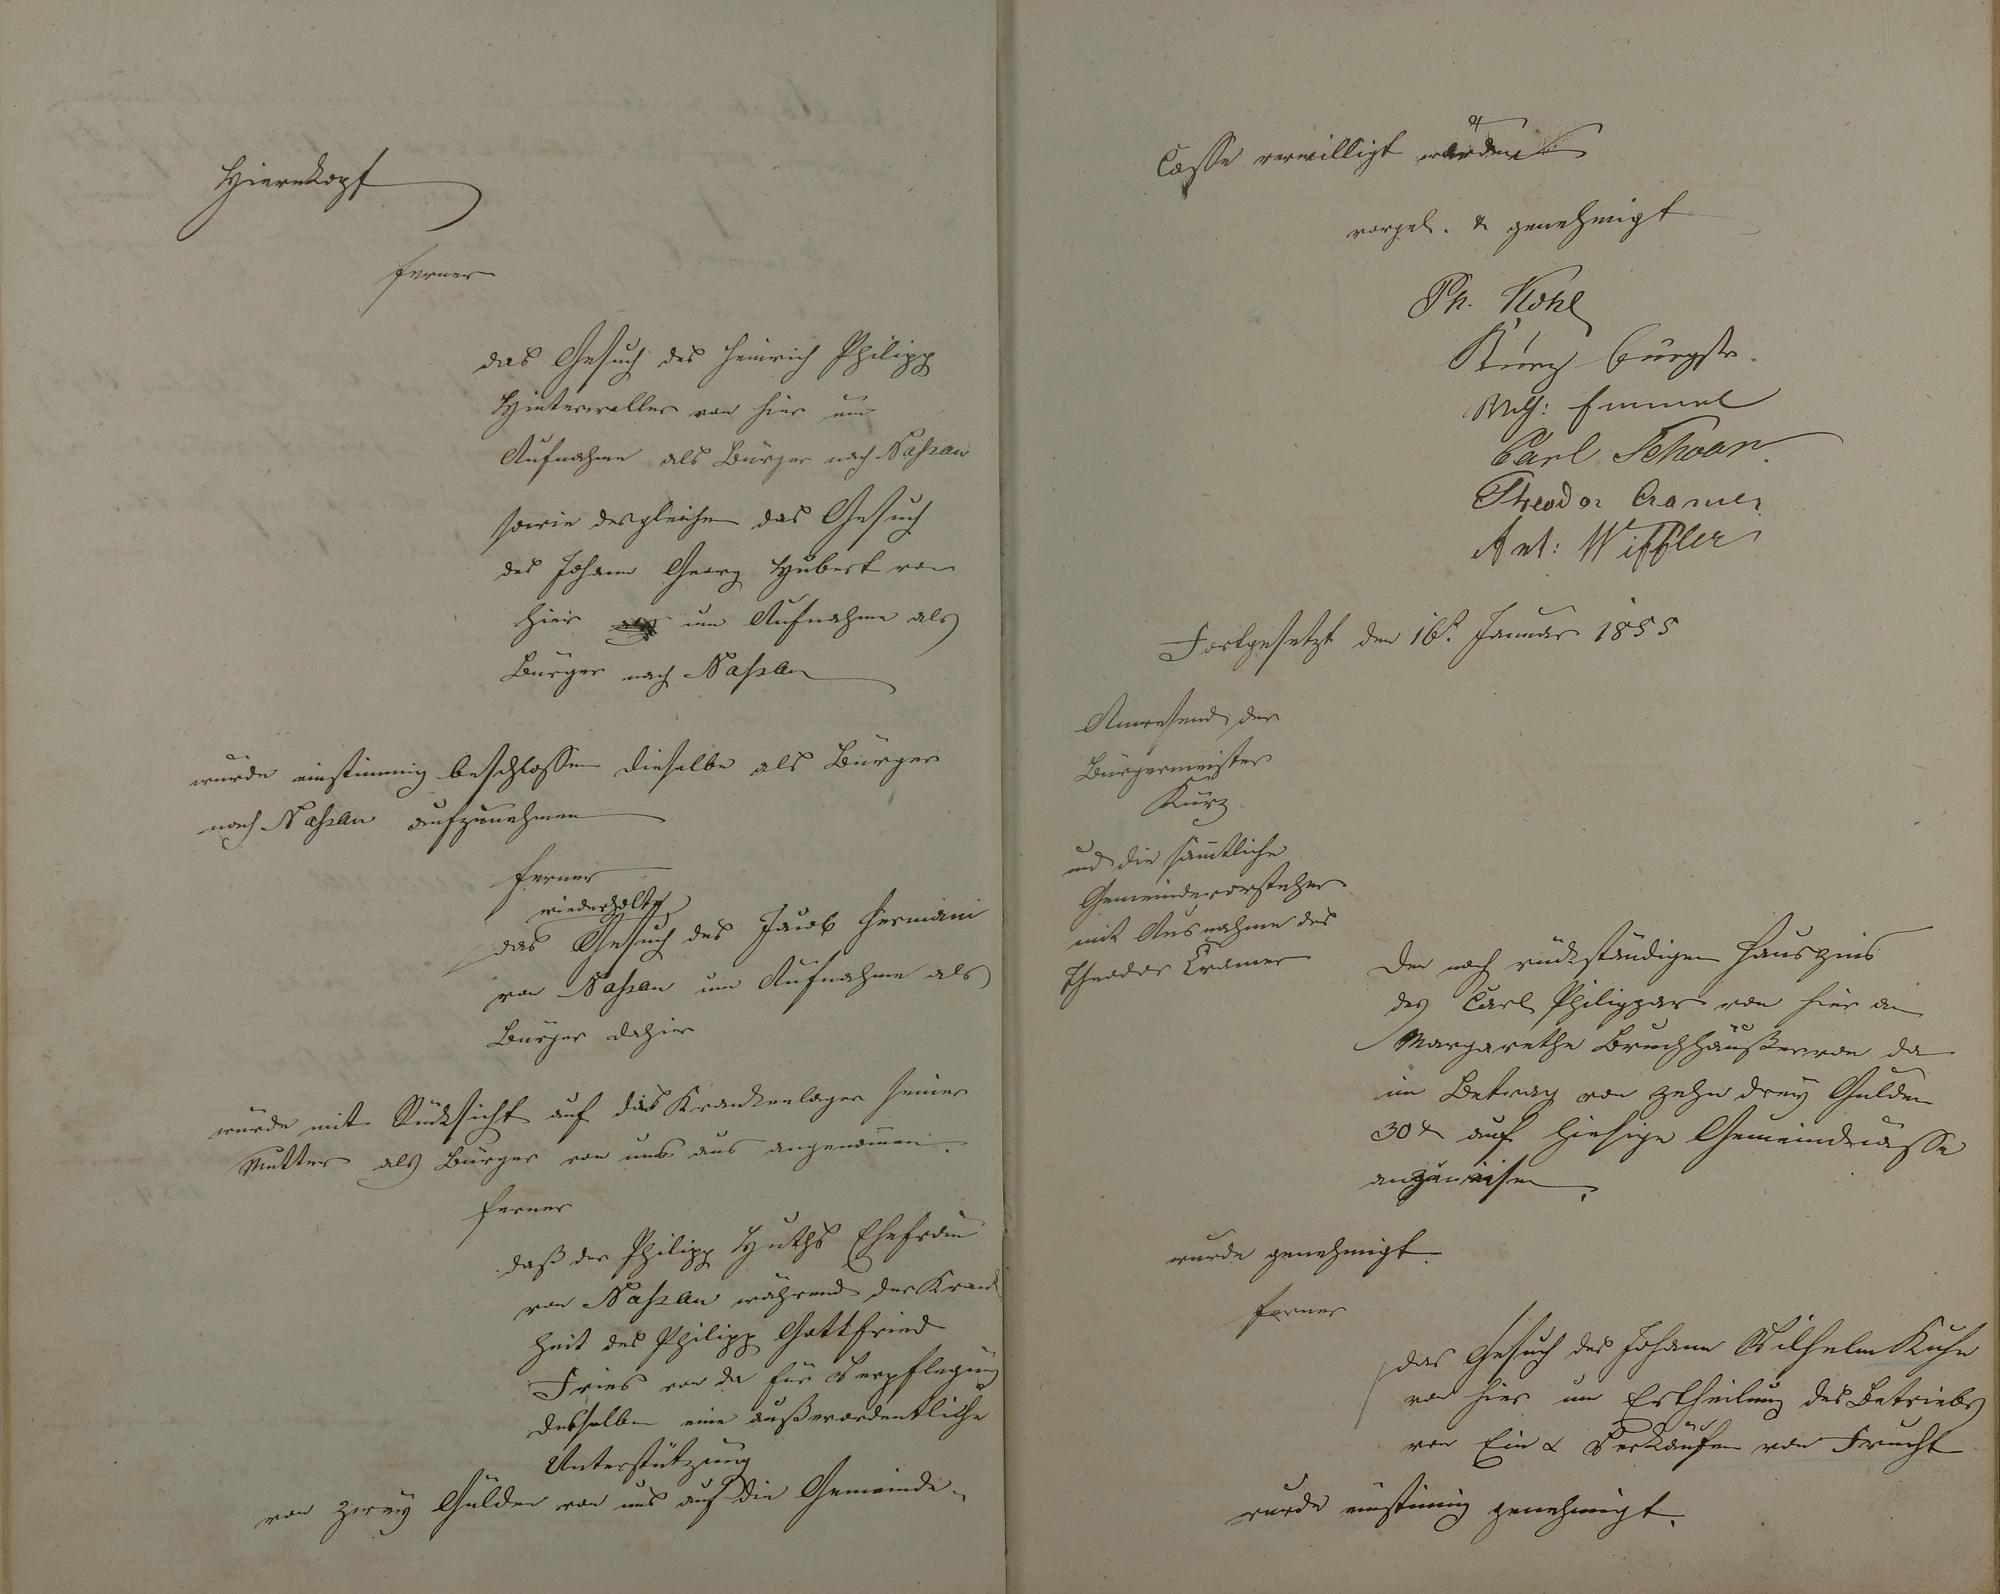 Hirnkopf
ferner
das Gesuch des Heinrich Philipp
Hinterwaller von hier um
Aufnahme als Bürger nach Nassau
sowie desgleichen das Gesuch
des Johann Georg Hubert von
hier um Aufnahme als
Bürger nach Nassau
wurde einstimmig beschlossen dieselbe als Bürger
nach Nassau aufzunehmen
ferner
wiederholte
das Gesuch des Jacob Hermani
von Nassau um Aufnahme als
Bürger dahier
wurde mit Rücksicht auf das Krankenlager seiner
Mutter als Bürger von uns aus angenommen.
ferner
daß der Philipp Huths Ehefrau
von Nassau während der Krank
heit des Philipp Gottfried
Fries von da für Verpflegung
desselben eine außerordentliche
Unterstützung
von zwey Gulden von uns auf die Gemeinde-
Casse verwilligt
vorgel. & genehmigt
Ph. Kohl
Kurz Bürgstr.
Wilh: Emmel
Carl Schoan
Theodor Cramer
Ant: Wiffler
Fortgesetzt den 16t Januar 1855
Anwesend der
Bürgermeister
Kurz
und die sämtliche
Gemeindevorsteher
mit Ausnahme des
Theodor Cramer
Den noch rückständigen Hauszins
des Carl Philippar von hier an
Margarethe Bruchhäußer von da
im Betrag von zehn drey Gulden
30 x auf hiesige Gemeindecasse
anzuweisen.
wurde genehmigt.
ferner
das Gesuch des Johann Wilhelm Kuhn
von hier um Ertheilung des Betriebs
von Ein & Verkäufen von Frucht
wurde einstimig genehmigt.